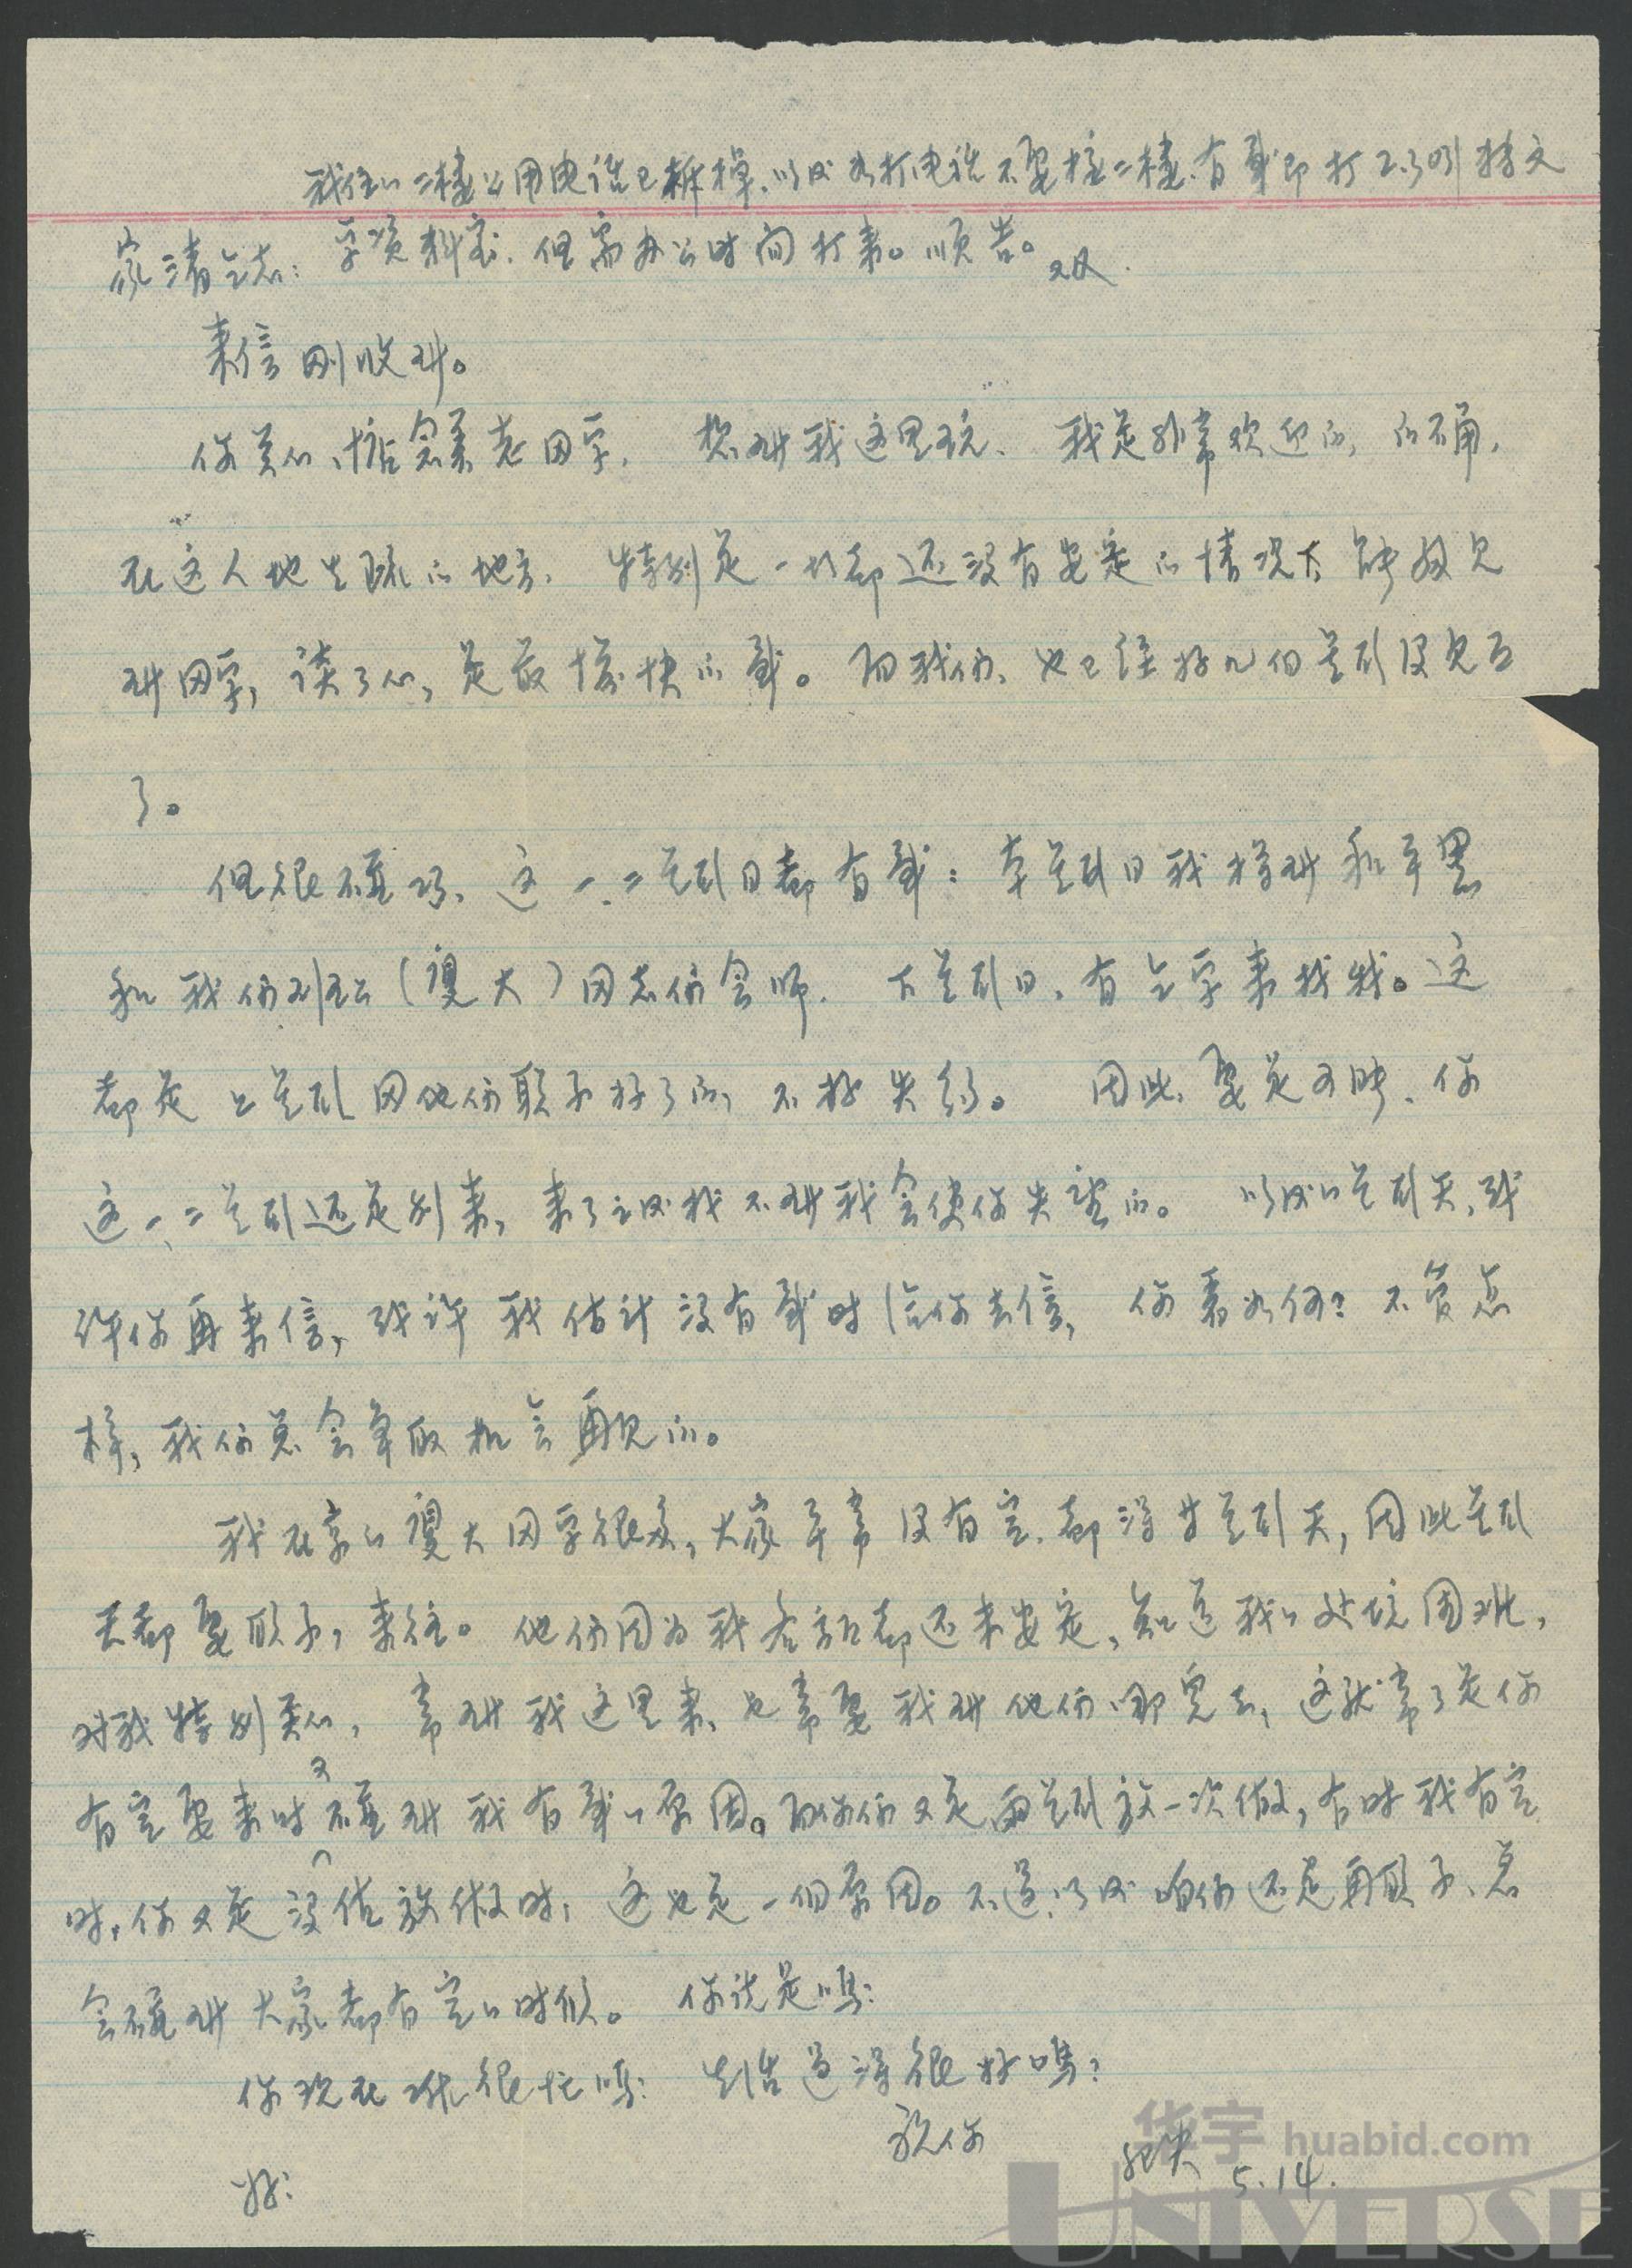 我住的二楼公用电话已拆掉，以后如打电话不要挂二楼，有事即打2.3091转文
学资料室，但需办公时间打来。顺告。又及．
家清同志：
来信刚收到。
你关心、惦念着老同学，想到我这里玩，我是非常欢迎的，的确，
在这人地生疏的地方，特别是一切都还没有安定的情况下能够见
到同学，谈谈心，是最愉快的事。而我们，也已经好几个星期没见面
了。
但很不凑巧，这一、二星期日都有事：本星期日我得到和平里
和我们（复大）同志们会师，下星期日，有同学来找我。这
都是上星期同他们联系好了的，不好失约。因此，要是可能，你
这一、二星期还是别来，来了之后找不到我会使你失望的。以后的星期天，或
许你再来信，或许我估计没有事时给你去信，你看如何？不管怎
样，我们总会争取机会再见的。
我在京的复大同学很多，大家平常没有空，都得等星期天，因此星期
天都要联系，来往。他们因为我各方面都还未安定，知道我的处境困难，
对我特别关心，常到我这里来，也常要我到他们哪儿去，这就常常是你
有空要来时又碰到我有事的原因。而你们又是两星期放一次假，有时我有空
时，你又是没值放假时，这也是一个原因。不过，以后咱们还是再联系，总
会碰到大家都有空的时候。你说是吗？
你现在很忙吗？生活过得很好吗？
祝你
好！
5.14．
华宇 huabid.com
UNIVERSE